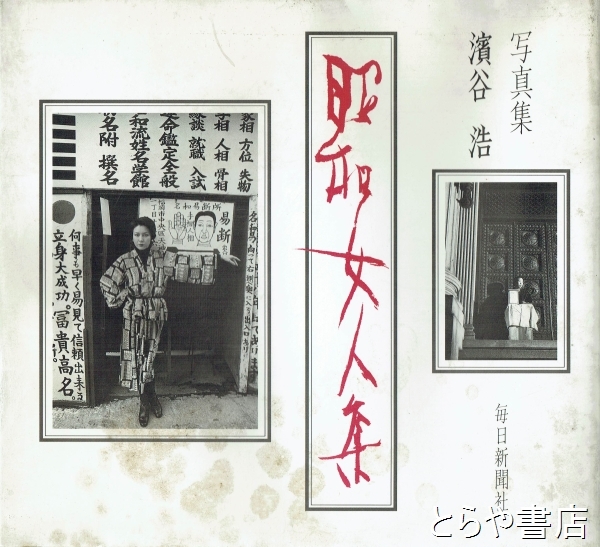 写真集
濱谷 浩
昭和女人集
毎日新聞社
家相 方位 失物
手相 人相 骨相
縁談 就職 入試
命鑑定全般
和流姓名学館
名附 撰名
易断
何事も早く易見て信頼出来る
立身大成功。冨貴高名。
とらや書店